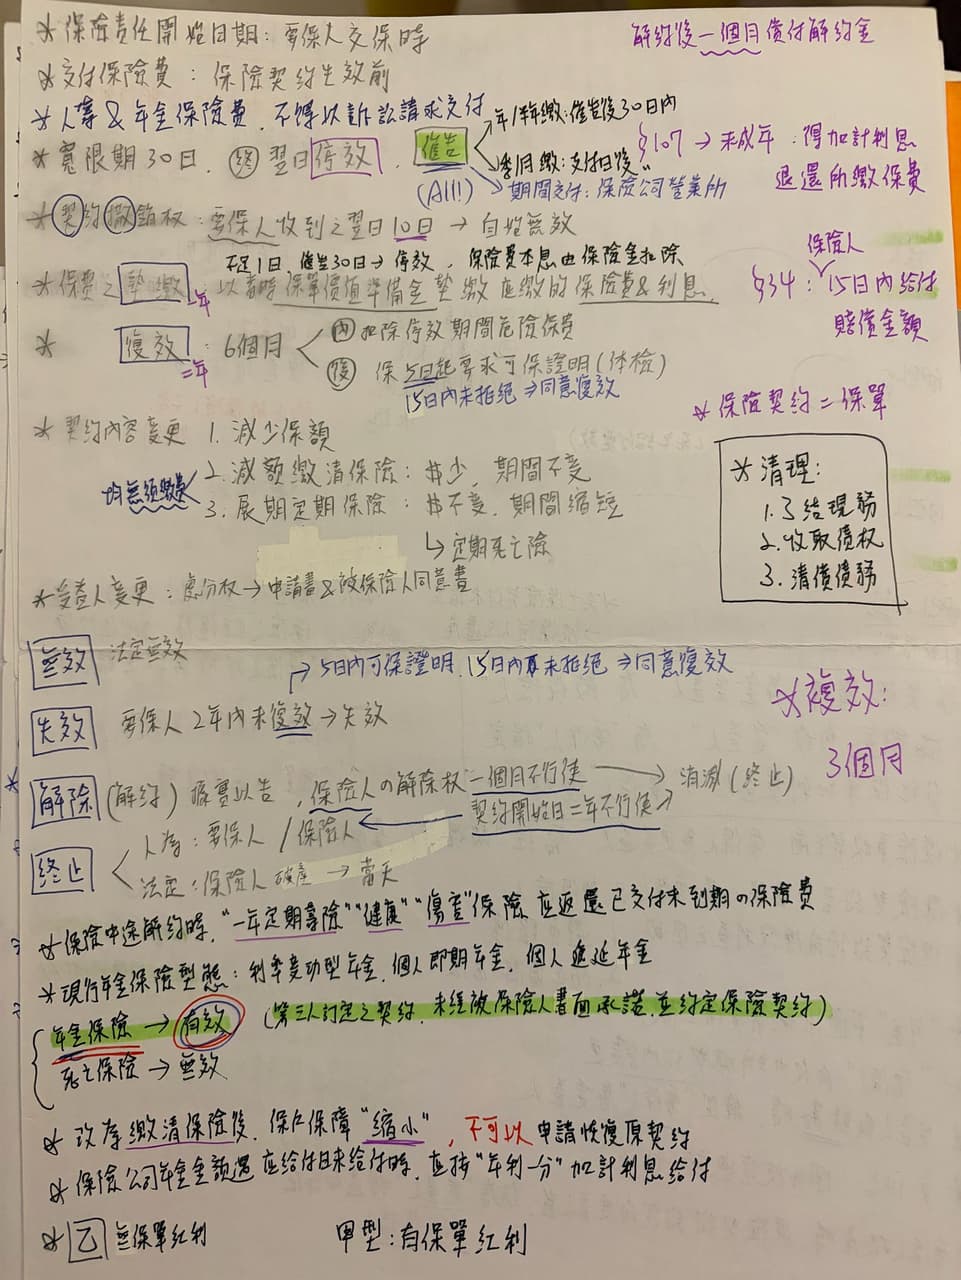 * 保險責任開始日期：要保人交保時
解約後一個月償付解約金
* 交付保險費：保險契約生效前
* 人壽 & 年金保險費，不得以訴訟請求交付
* 寬限期30日，終 翌日停效，催告
年/半年繳：催告後30日內
季/月繳：支付日後 〃
(A1!!) 期間交付：保險公司營業所
§107 → 未成年：得加計利息
退還所繳保費
* 契約撤銷權：要保人收到之翌日10日 → 自始無效
不足1日，催告30日 → 停效，保險費本息由保險金扣除
* 保費之墊繳 一年 以當時保單價值準備金墊繳應繳的保險費&利息.
保險人
§34：15日內給付
賠償金額
* 復效 二年：6個月
內 扣除停效期間危險保費
後 保 5日起要求可保證明(体檢)
15日內未拒絕 ⇒ 同意復效
* 保險契約 = 保單
* 契約內容變更 1. 減少保額
2. 減額繳清保險：$少，期間不變
均無須繳費
3. 展期定期保險：$不變，期間縮短
↳ 定期死亡險
* 清理：
1. 了結現務
2. 收取債權
3. 清償債務
* 受益人變更：處分权 → 申請書&被保險人同意書
無效 法定無效
→ 5日內可保證明，15日內未拒絕 ⇒ 同意復效
失效 要保人 2年內未復效 → 失效
* 複效：
3個月
解除 (解約) 據實以告，保險人の解除权 一個月不行使 → 消滅(終止)
契約開始日二年不行使
終止
人為：要保人 / 保險人
法定：保險人 破產 → 當天
* 保險中途解約時，"一年定期壽險" "健康" "傷害"保險，應返還已交付未到期の保險費
* 現行年金保險型態：利率變動型年金，個人即期年金，個人遞延年金
年金保險 → 有效 (第三人訂定之契約，未經被保險人書面承諾，並約定保險契約)
死亡保險 → 無效
* 改為繳清保險後，保戶保障 "縮小"，不可以申請恢復原契約
* 保險公司年金金額遇應給付日未給付時，應按"年利一分"加計利息給付
* 乙 無保單紅利 甲型：有保單紅利